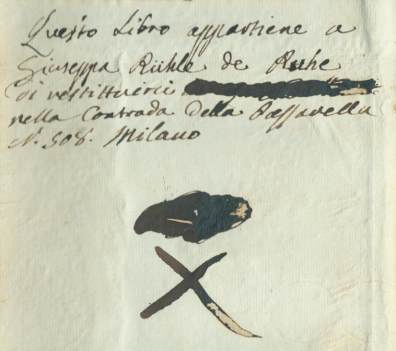 Questo Libro appartiene a
Giuseppa Rühle de Ruhe
di restittuirci
nella Contrada della Passarella
N.º 508. Milano